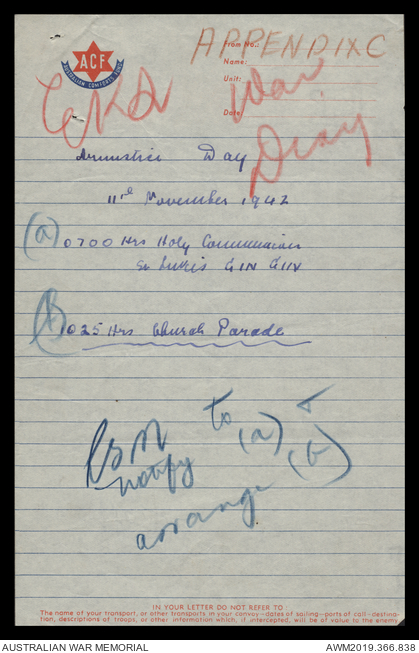 APPENDIX C
ACF
AUSTRALIAN COMFORTS FUND
From No.:
Name:
Unit:
Date
War
Diary
Armistice Day
11th November 1942
(a) 0700 Hrs Holy Communion
St Luke's GIN GIN
(b) 1025 Hrs Church Parade
to
notify (a) &
arrange (b)
IN YOUR LETTER DO NOT REFER TO :
The name of your transport, or other transports in your convoy—dates of sailing—ports of call—destina-
tion, descriptions of troops, or other information which, if intercepted, will be of value to the enemy
AUSTRALIAN WAR MEMORIAL
AWM2019.366.838